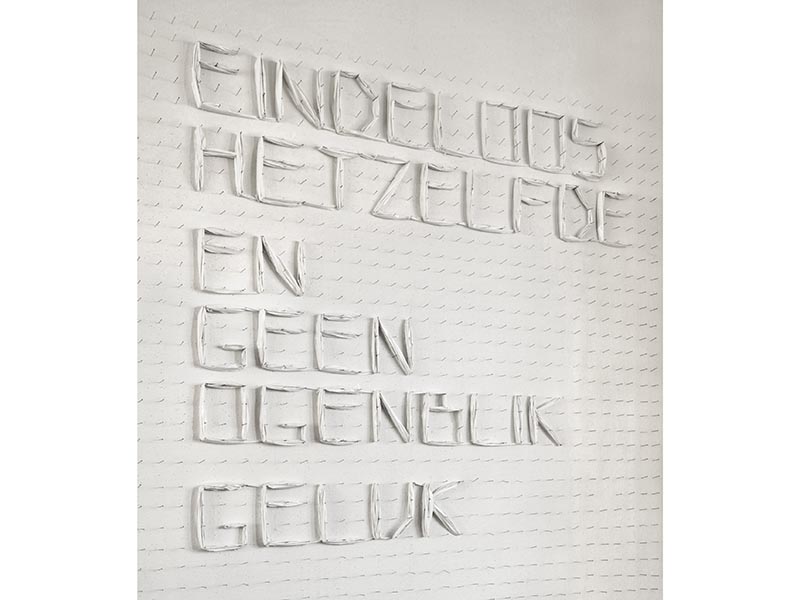 EINDELOOS
HETZELFDE
EN
GEEN
OGENBLIK
GELIJK